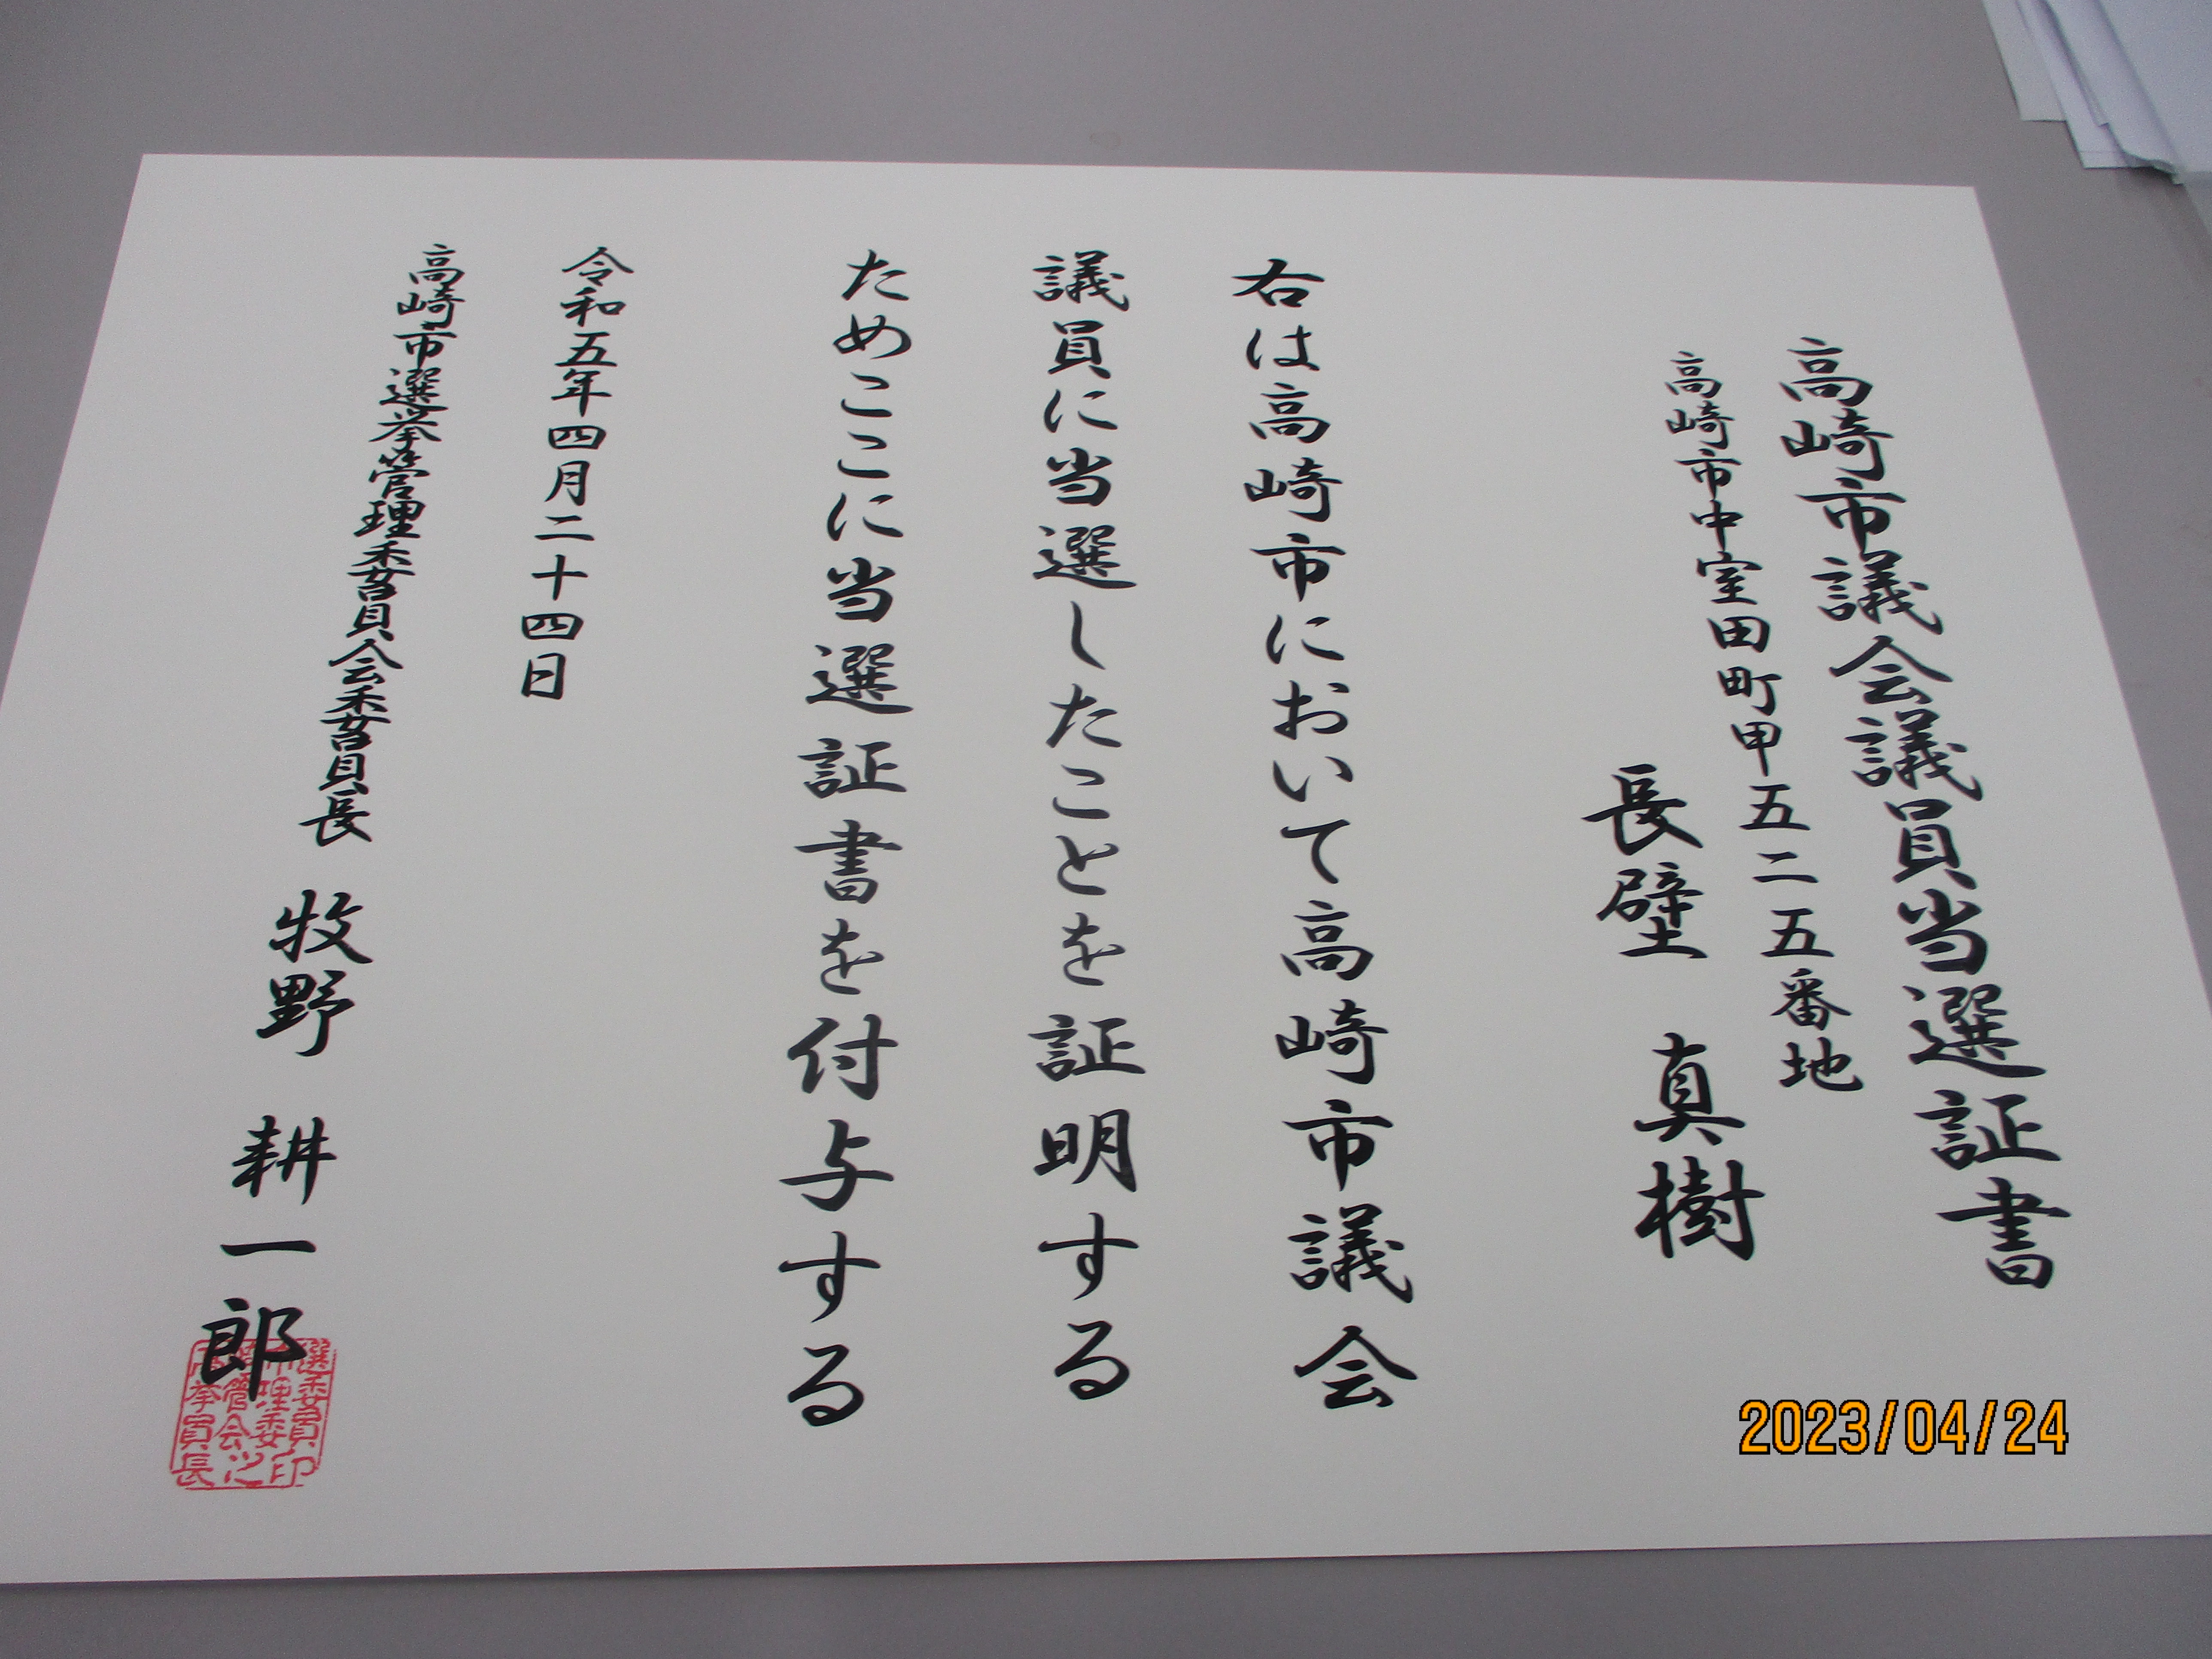 高崎市議会議員当選証書
高崎市中室田町甲五二五番地
長壁 真樹
右は高崎市において高崎市議会
議員に当選したことを証明する
ためここに当選証書を付与する
令和五年四月二十四日
高崎市選挙管理委員会委員長 牧野 耕一郎
2023/04/24